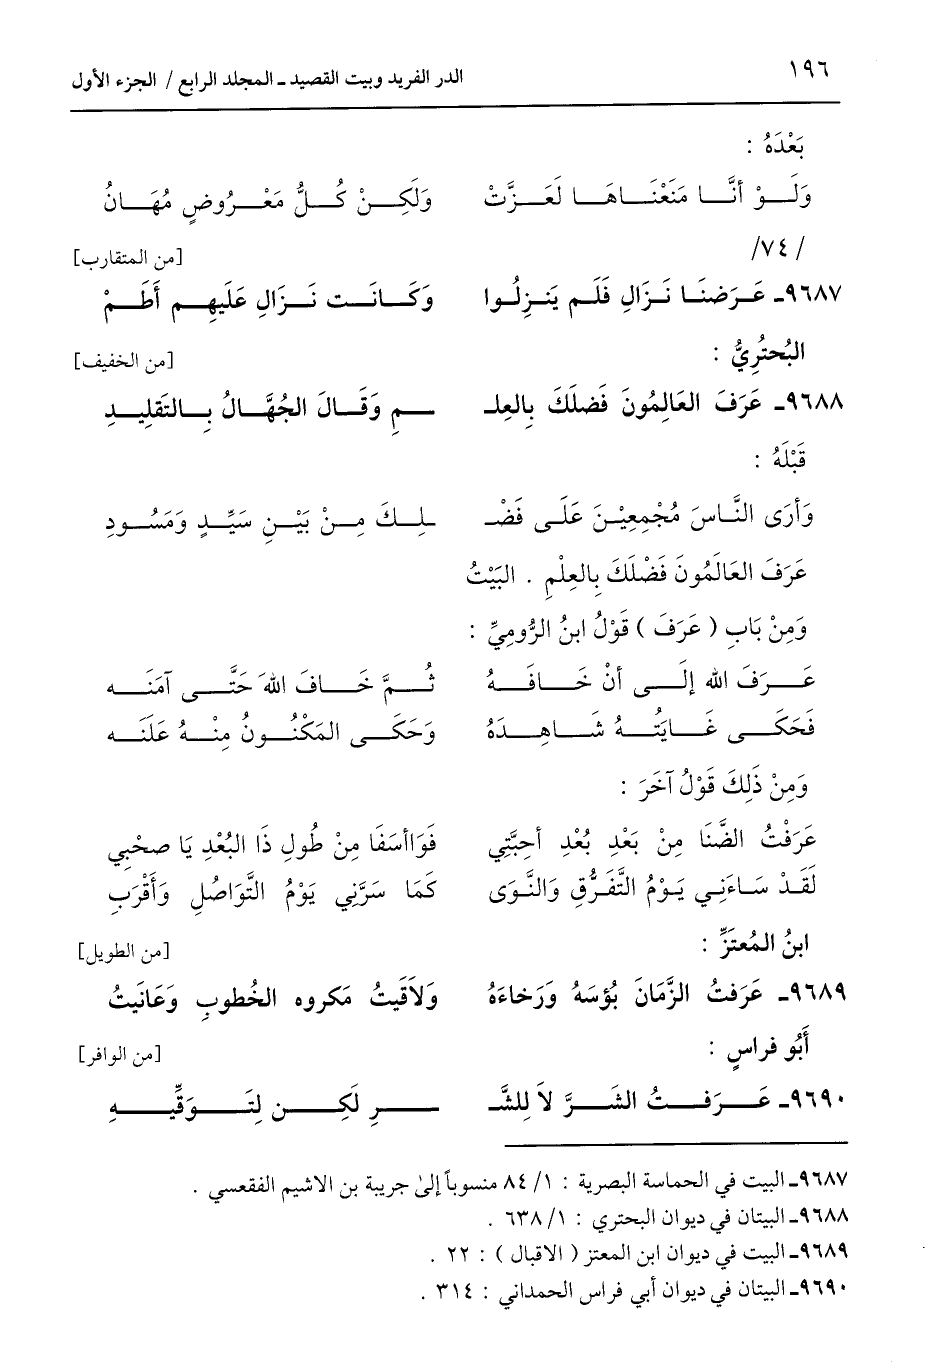 ١٩٦ الدر الفريد وبيت القصيد ـ المجلد الرابع / الجزء الأول
بَعْدَهُ :
وَلَوْ أنَّا مَنَعْنَاهَا لَعَزَّتْ وَلَكِنْ كُلُّ مَعْرُوضٍ مُهَانُ
/ ٧٤/ [من المتقارب]
٩٦٨٧ـ عَرَضنَا نَزَالِ فَلَم يَنزِلُوا وَكَانَت نَزَالِ عَلَيهِم أَطَمْ
البُحتُرِيُّ : [من الخفيف]
٩٦٨٨ـ عَرَفَ العَالِمُونَ فَضلَكَ بِالعِلـ ـمِ وَقَالَ الجُهَّالُ بِالتَقلِيدِ
قَبْلَهُ :
وَأرَى النَّاسَ مُجْمِعِيْنَ عَلَى فَضْـ ـلِكَ مِنْ بَيْنِ سَيِّدٍ وَمَسُودِ
عَرَفَ العَالَمُونَ فَضْلَكَ بِالعِلْمِ . البَيْتُ
وَمِنْ بَابِ ( عَرَفَ ) قَوْلُ ابنُ الرُّومِيِّ :
عَرَفَ الله إلَى أنْ خَافَهُ ثُمَّ خَافَ اللهَ حَتَّى آمَنَه
فَحَكَى غَايَتُهُ شَاهِدَهُ وَحَكَى المَكْنُونُ مِنْهُ عَلَنَه
وَمِنْ ذَلِكَ قَوْلُ آخَرَ :
عَرَفْتُ الضَّنَا مِنْ بَعْدِ بُعْدِ أحِبَّتِي فَوَاأسَفَا مِنْ طُولِ ذَا البُعْدِ يَا صحْبِي
لَقَدْ سَاءَنِي يَوْمُ التَّفَرُّقِ وَالنَّوَى كَمَا سَرَّنِي يَوْمُ التَّوَاصُلِ وَأقْرَبِ
ابنُ المُعتَزِّ : [من الطويل]
٩٦٨٩ـ عَرَفتُ الزَّمَانَ بُؤسَهُ وَرَخاءَهُ وَلاَقَيتُ مَكروه الخُطوبِ وَعَانَيتُ
أَبُو فراسٍ : [من الوافر]
٩٦٩٠ـ عَرَفتُ الشَرَّ لاَ لِلشَّـ ـرِ لَكِن لِتَوَقِّيهِ
٩٦٨٧ـ البيت في الحماسة البصرية : ١/ ٨٤ منسوباً إلىٰ جريبة بن الاشيم الفقعسي .
٩٦٨٨ـ البيتان في ديوان البحتري : ١/ ٦٣٨ .
٩٦٨٩ـ البيت في ديوان ابن المعتز ( الاقبال ) : ٢٢ .
٩٦٩٠ـ البيتان في ديوان أبي فراس الحمداني : ٣١٤ .